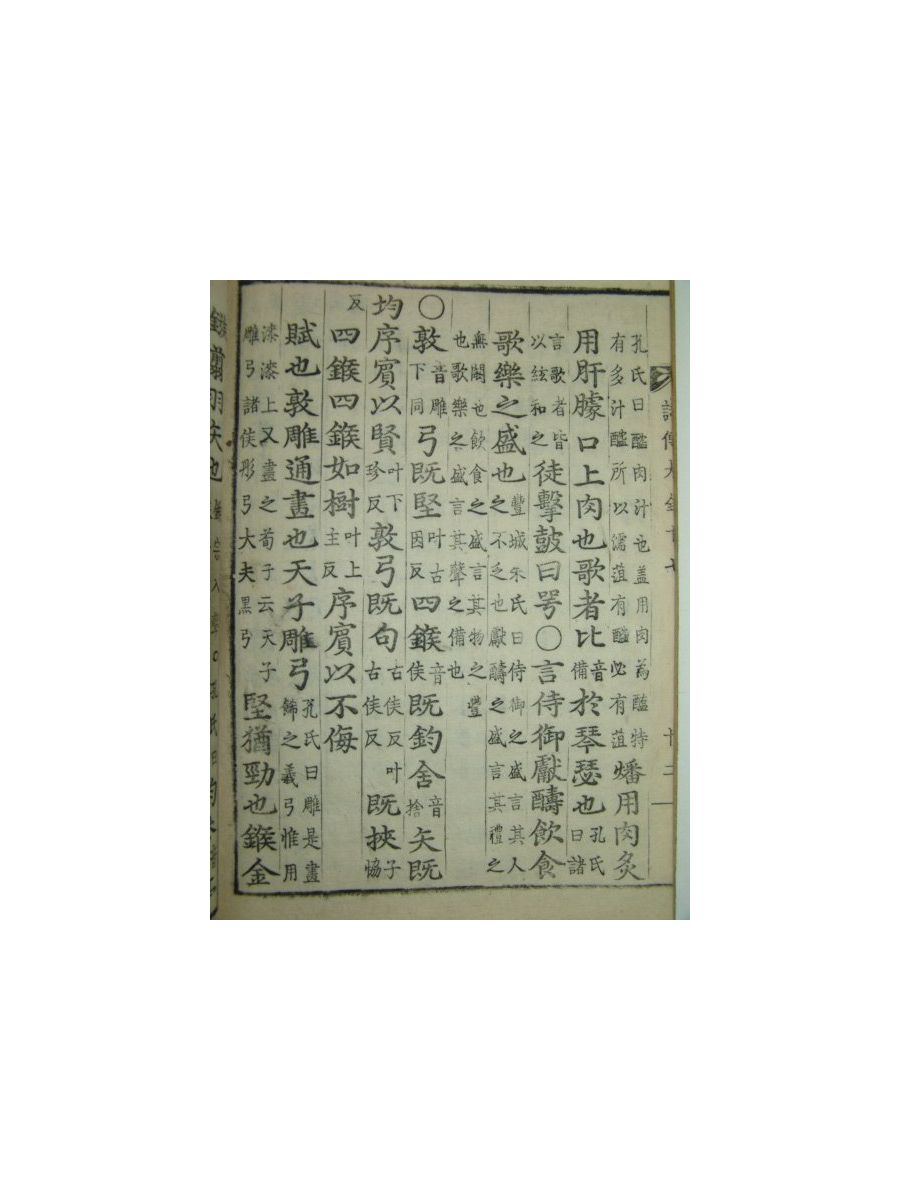 詩傳大全十七 十二
孔氏曰醓肉汁也盖用肉為醢特有多汁醓所以濡菹有醓必有菹燔用肉炙
用肝臄口上肉也歌者比音備於琴瑟也孔氏曰諸
言歌者皆以絃和之徒擊鼓曰咢○言侍御獻醻飲食
歌樂之盛也豐城朱氏曰侍御之盛言其人之不乏也獻醻之盛言其禮之
無闕也飲食之盛言其物之豐也歌樂之盛言其聲之備也
○敦音雕下同弓既堅叶古因反四鍭音侯既鈞舍音捨矢既
均序賓以賢叶下珍反敦弓既句古侯反叶古侯反既挾子恊
反四鍭四鍭如樹叶上主反序賓以不侮
賦也敦雕通畫也天子雕弓孔氏曰雕是畫餙之義弓惟用
漆漆上又畫之荀子云天子雕弓諸侯彤弓大夫黑弓堅猶勁也鍭金